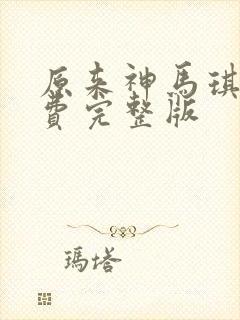 原来神馬琪
費完整版
瑪塔